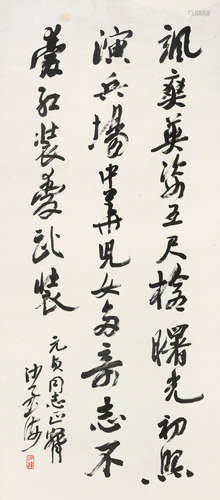 飒爽英姿五尺枪曙光初照
演兵场中华儿女多奇志不
爱红装爱武装
元贞同志正腕
沙孟海